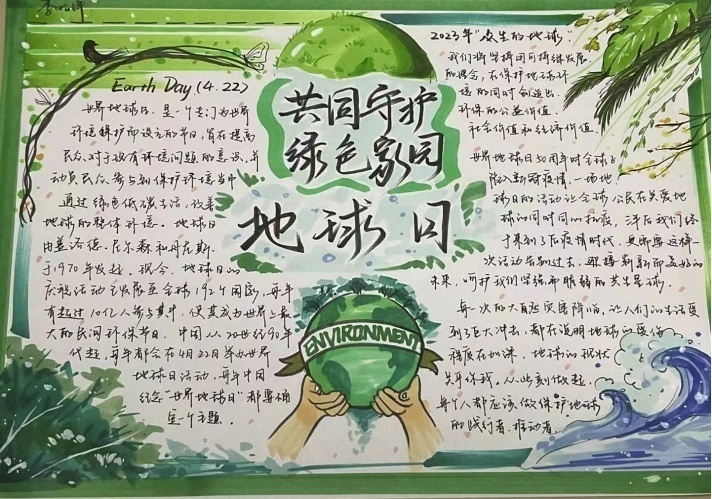 Earth Day (4.22)
世界地球日,是一个专门为世界
环境保护而设立的节日,旨在提高
民众对于现有环境问题的意识,并
动员民众参与到保护环境当中
通过绿色低碳生活,改善
地球的整体环境。地球日
由盖洛德·尼尔森和丹尼斯·
于1970年发起,现今,地球日的
庆祝活动已发展至全球192个国家,每年
有超过10亿人参与其中,使其成为世界上最
大的民间环保节日。中国从20世纪90年
代起,每年都会在4月22日举办世界
地球日活动,每年中国
纪念"世界地球日"都要确
定一个主题。
共同守护
绿色家园
地球日
ENVIRONMENT
2023年"众生的地球"
我们将坚持可持续发展
的理念,在保护地球环
境的同时创造出
环保的公益价值,
社会价值和经济价值。
世界地球日50周年时全球
新冠疫情,一场地
球日的活动让全球公民在关爱地
球的同时同心抗疫,三年后我们终
于来到了后疫情时代,更需要这样一
次活动告别过去,迎接新的而美好的
未来,呵护我们坚强而脆弱的共生星球。
每一次的大自然灾害降临,让人们的生活受
到了巨大冲击,都在说明地球的受伤
程度在加深,地球的现状
关乎你我。从此刻做起,
每个人都应该做保护地球
的践约者、推动者。